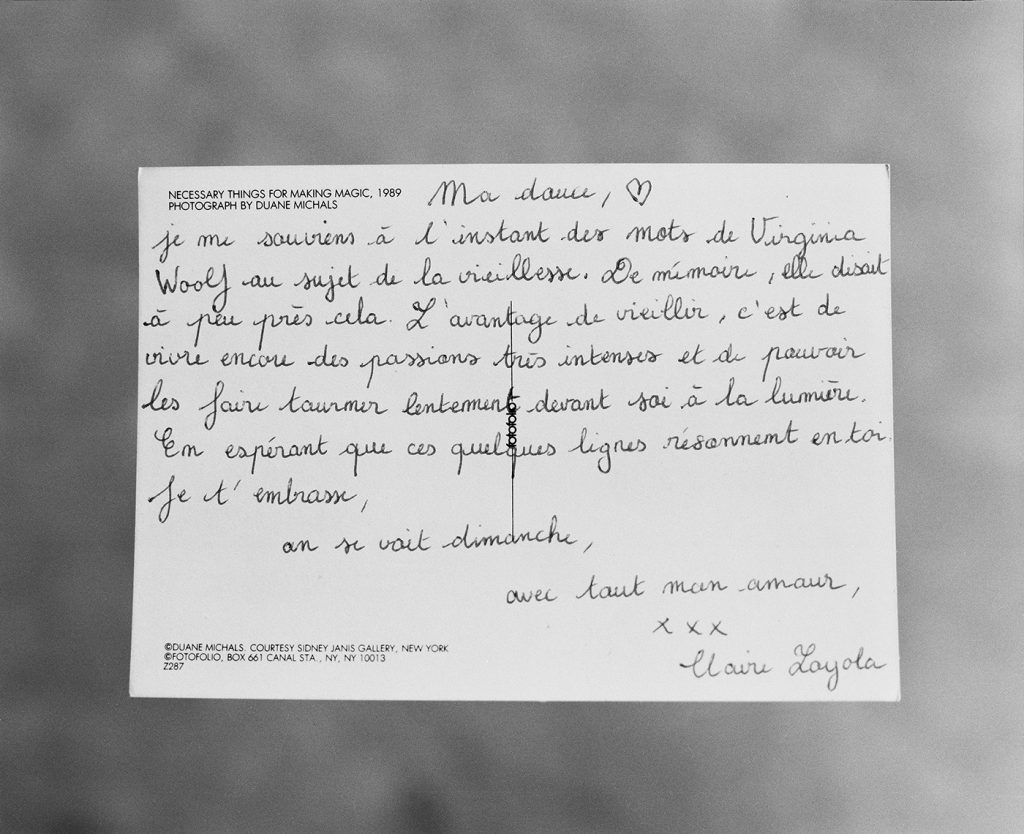 NECESSARY THINGS FOR MAKING MAGIC, 1989
PHOTOGRAPH BY DUANE MICHALS
Ma douce, ♡
je me souviens à l'instant des mots de Virginia
Woolf au sujet de la vieillesse. De mémoire, elle disait
à peu près cela. L'avantage de vieillir, c'est de
vivre encore des passions très intenses et de pouvoir
les faire tourner lentement devant soi à la lumière.
En espérant que ces quelques lignes résonnent en toi.
Je t'embrasse,
on se voit dimanche,
avec tout mon amour,
xxx
Claire Loyola
fotofolio
©DUANE MICHALS. COURTESY SIDNEY JANIS GALLERY, NEW YORK
©FOTOFOLIO, BOX 661 CANAL STA., NY, NY 10013
Z287